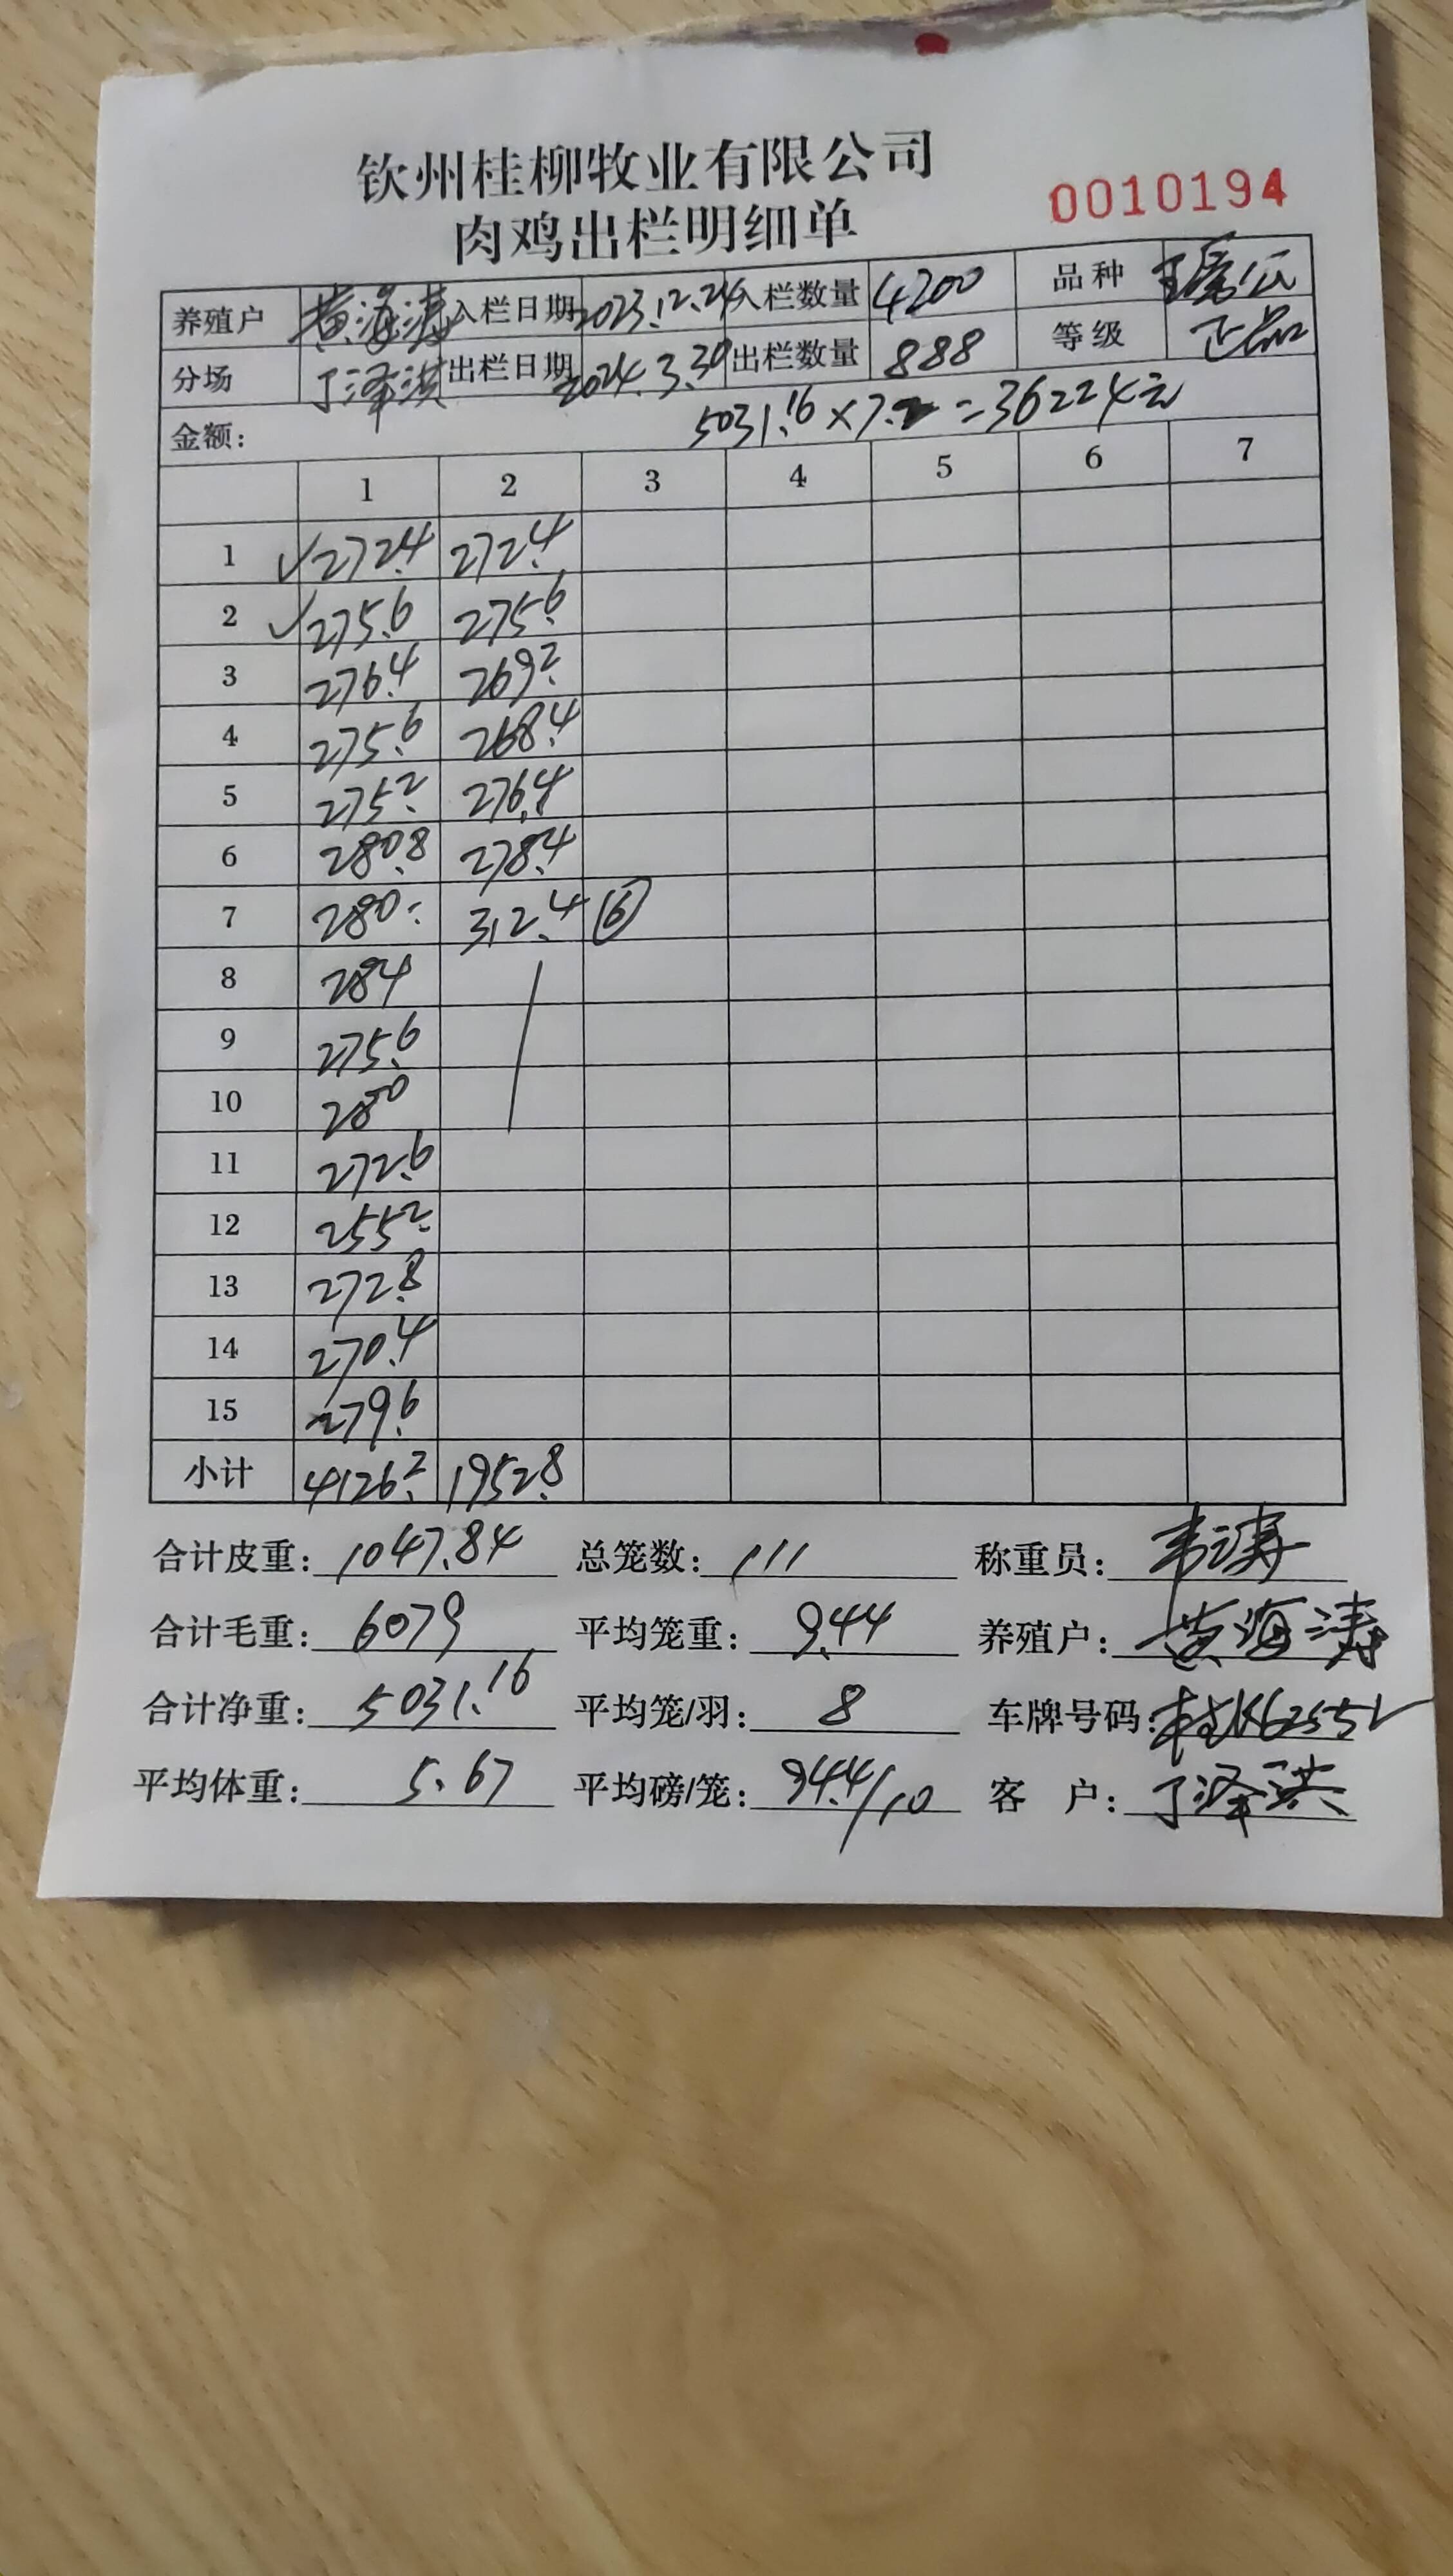 钦州桂柳牧业有限公司
肉鸡出栏明细单
0010194
养殖户 黄海涛 入栏日期 2023.12.24 入栏数量 4200 品种
分场 丁泽洪 出栏日期 2024.3.30 出栏数量 888 等级 正品
金额: 5031.16×7.2=36224元
1 2 3 4 5 6 7
1 ✓272.4 272.4
2 ✓275.6 275.6
3 276.4 269.2
4 275.6 268.4
5 275.2 276.4
6 280.8 278.4
7 280 312.4 ⑥
8 284
9 275.6
10 280
11 272.6
12 255.2
13 272.8
14 270.4
15 279.6
小计 4126.2 1952.8
合计皮重: 1047.84 总笼数: 111 称重员: 韦涛
合计毛重: 6079 平均笼重: 9.44 养殖户: 黄海涛
合计净重: 5031.16 平均笼/羽: 8 车牌号码:
平均体重: 5.67 平均磅/笼: 94.4/10 客 户: 丁泽洪